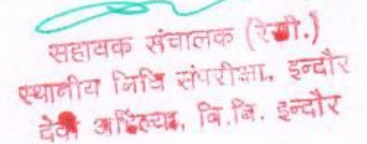 सहायक संचालक (रेसी.)
स्थानीय निधि संपरीक्षा, इन्दौर
देवी अहिल्या, वि.वि. इन्दौर